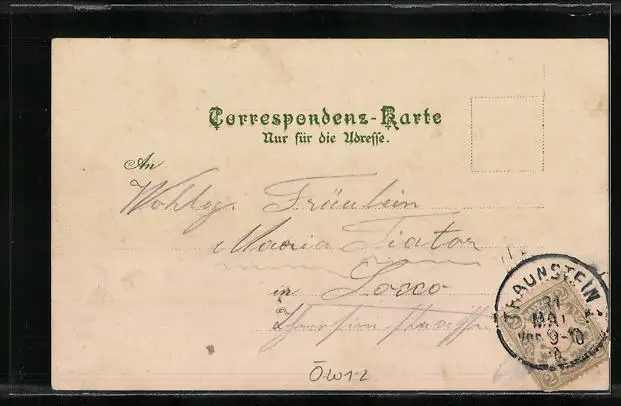 Correspondenz-Karte
Nur für die Adresse.
An
Wohlg. Fräulein
Maria Tiator
in Locco
TRAUNSTEIN
31
MAI
Vor. 9-10
2
ÖW12